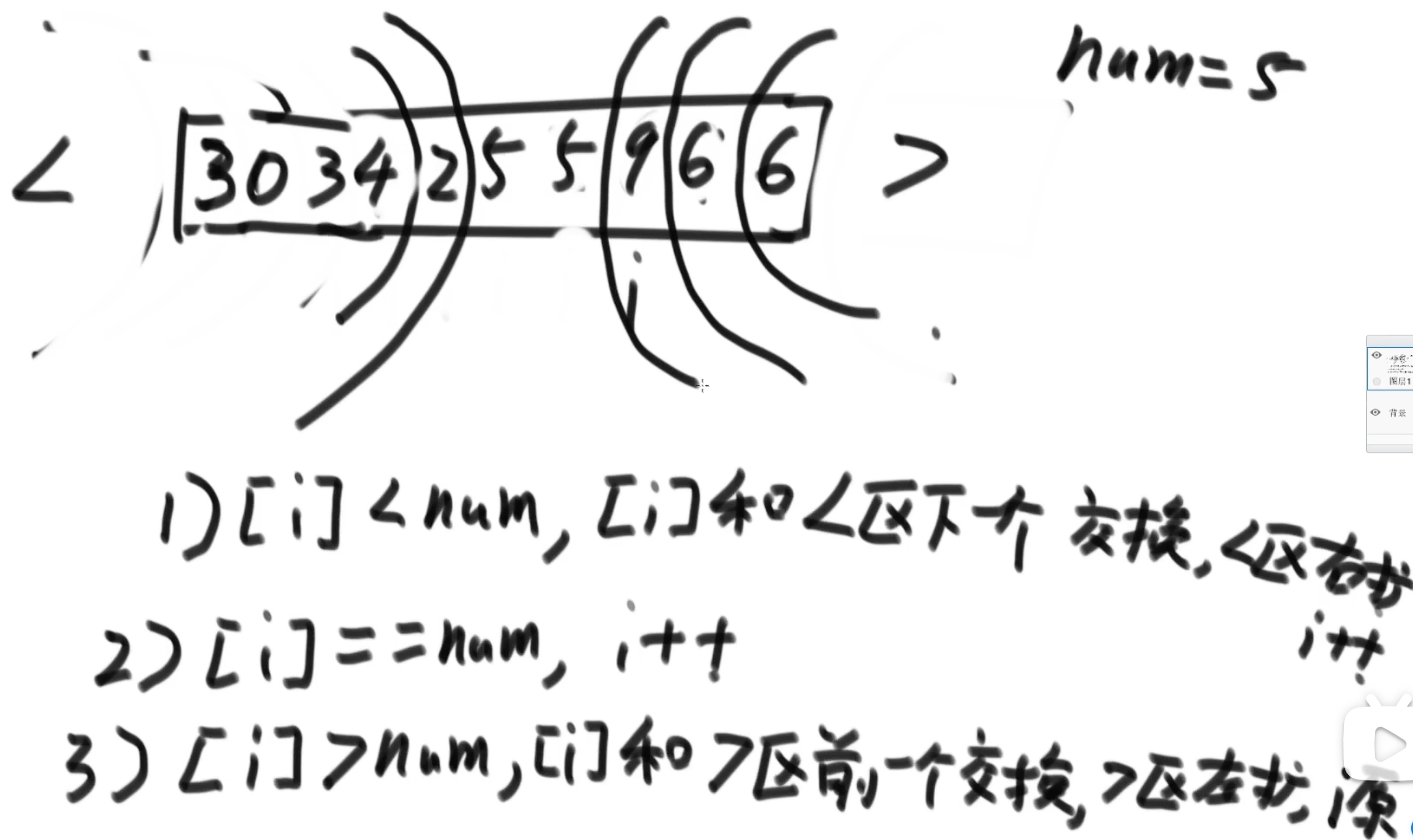 num=5
< 3 0 3 4 2 5 5 9 6 6 >
i
1) [i] < num, [i]和<区下一个 交换, <区右扩
i++
2) [i] == num, i++
3) [i] >num, [i]和 >区前一个交换, >区左扩, i原
图层1
背景